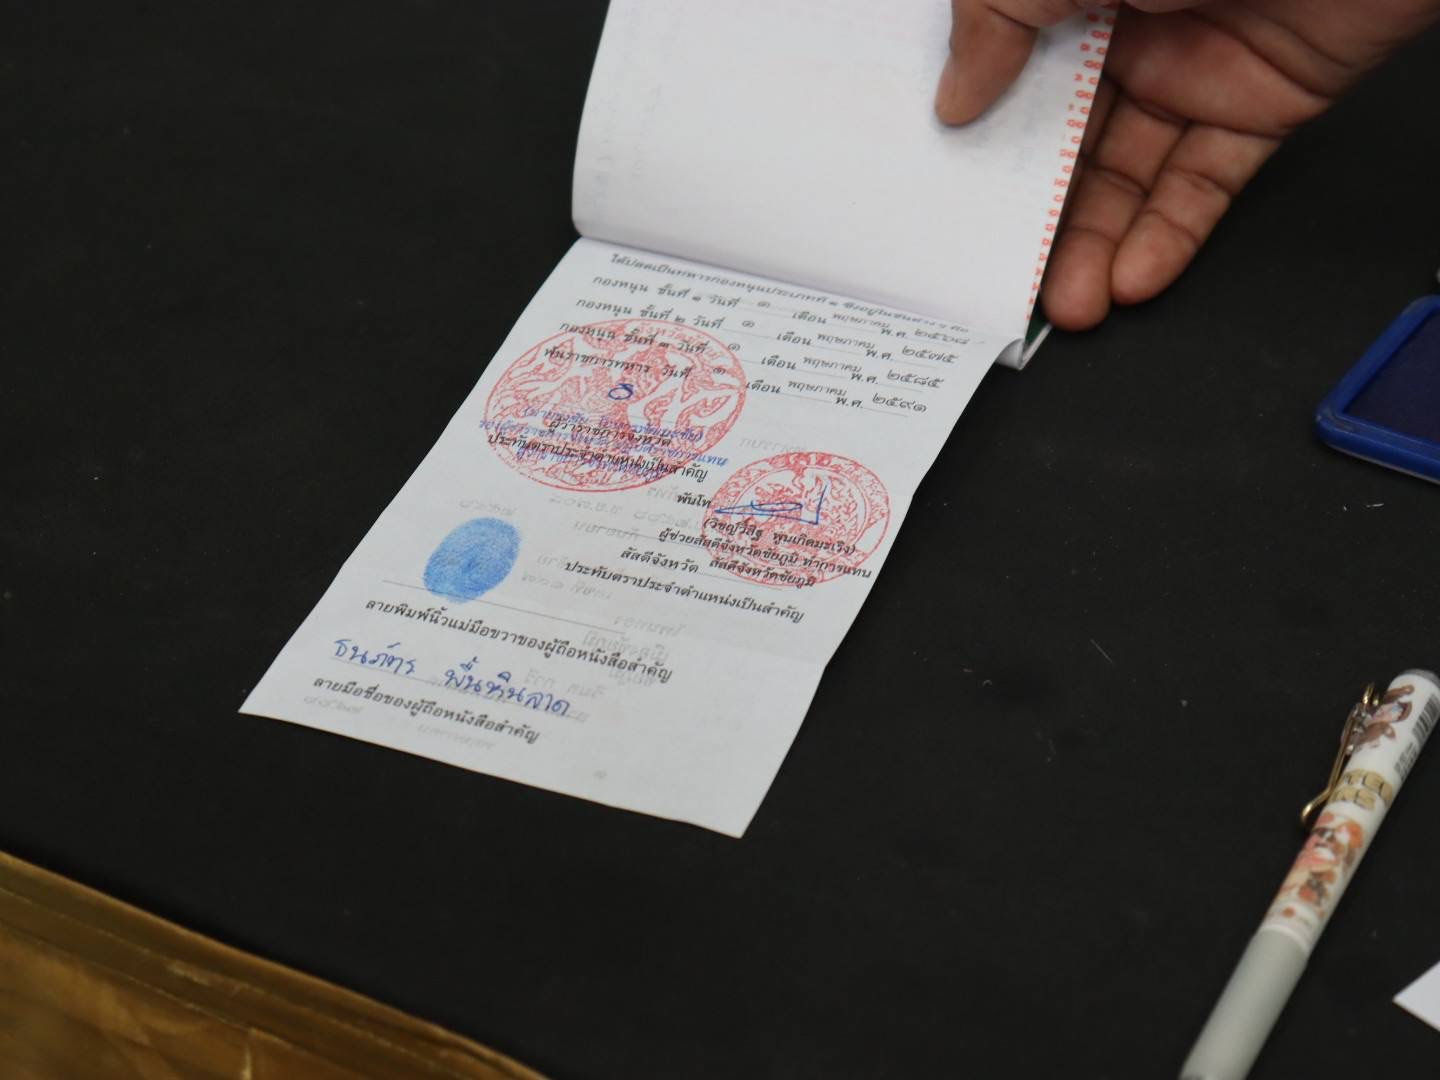 ได้ปลดเป็นทหารกองหนุนประเภทที่ ๑
กองหนุน ชั้นที่ ๑ วันที่ ๑ เดือน พฤษภาคม พ.ศ. ๒๕๖๘
กองหนุน ชั้นที่ ๒ วันที่ ๑ เดือน พฤษภาคม พ.ศ. ๒๕๗๕
กองหนุน ชั้นที่ ๓ วันที่ ๑ เดือน พฤษภาคม พ.ศ. ๒๕๘๕
พ้นราชการทหาร วันที่ ๑ เดือน พฤษภาคม พ.ศ. ๒๕๙๑
ผู้ว่าราชการจังหวัด
ประทับตราประจำตำแหน่งเป็นสำคัญ
พันโท
(วิชญ์วิสิฐ พูนเกิดมะเริง)
ผู้ช่วยสัสดีจังหวัดชัยภูมิ ทำการแทน
สัสดีจังหวัด สัสดีจังหวัดชัยภูมิ
ประทับตราประจำตำแหน่งเป็นสำคัญ
ลายพิมพ์นิ้วแม่มือขวาของผู้ถือหนังสือสำคัญ
ธนภัทร พื้นหินลาด
ลายมือชื่อของผู้ถือหนังสือสำคัญ